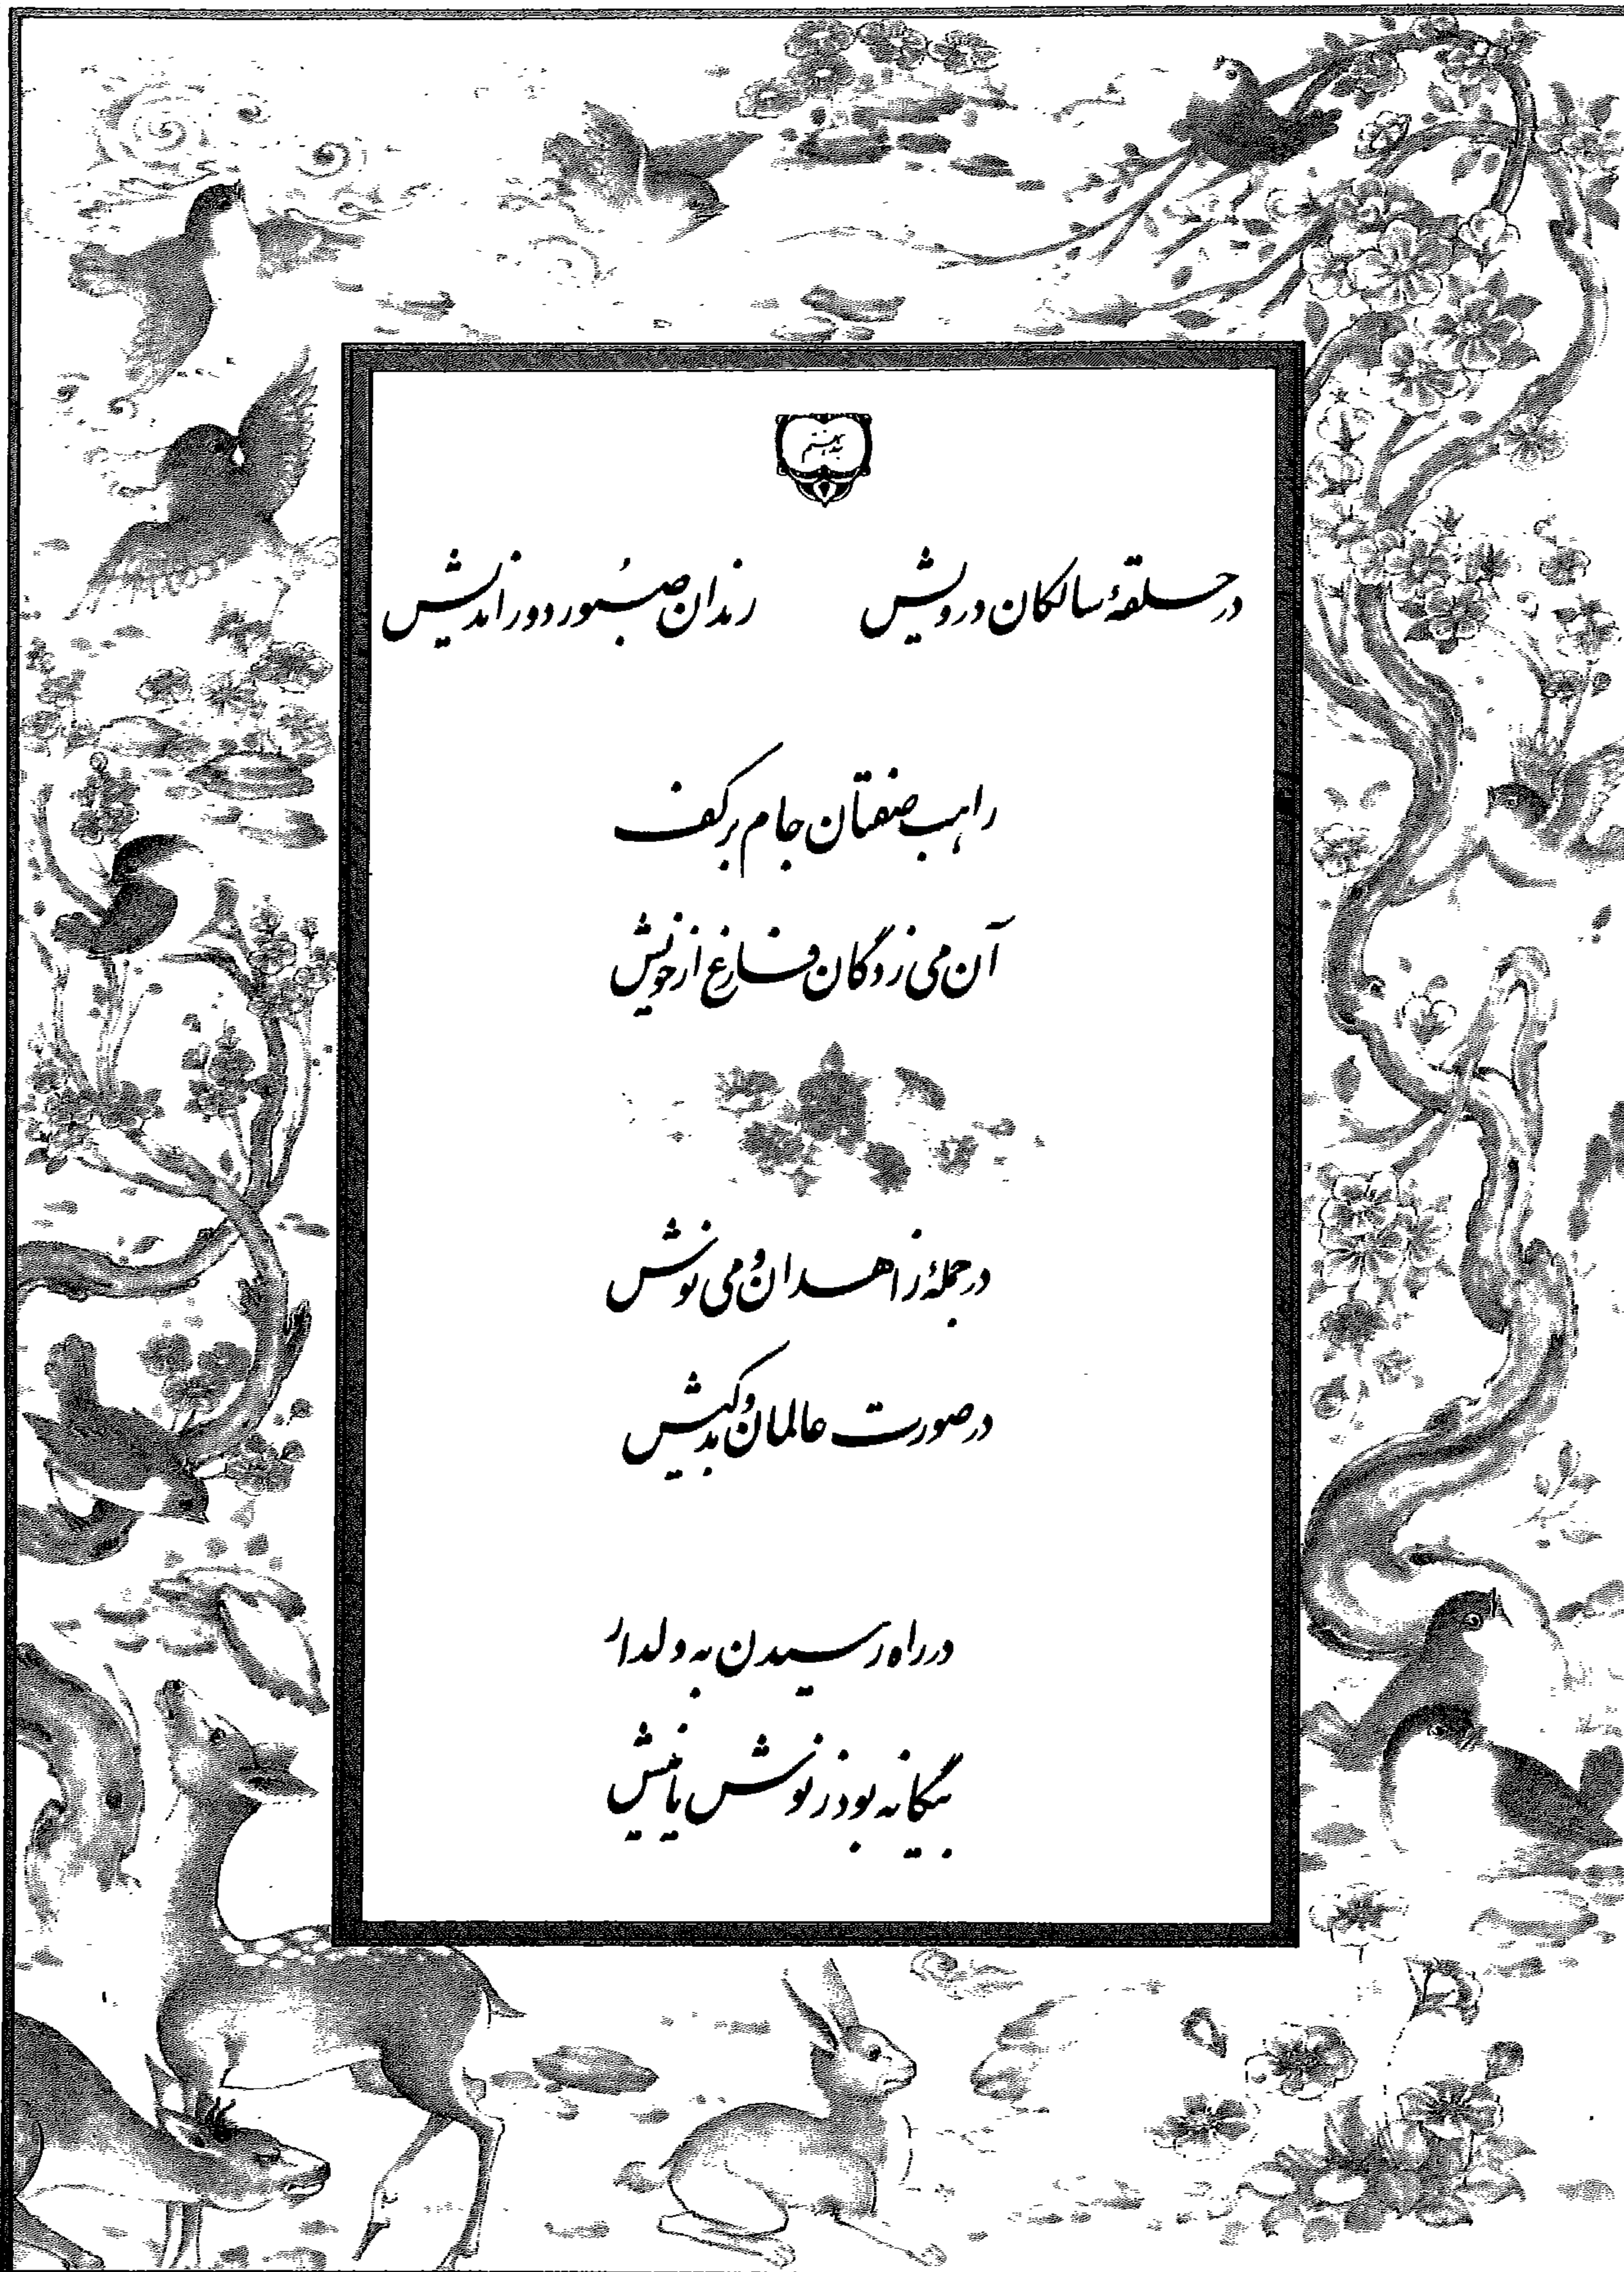 جلد هفتم
در حلقهٔ سالکان درویش    رندان صبُور دوراندیش
راهب صفتان جام بر کف
آن می زدگان فارغ از خویش
در جملهٔ زاهدان و می نوش
در صورت عالمان و بدکیش
در راه رسیدن به دلدار
بیگانه بود ز نوش یا نیش